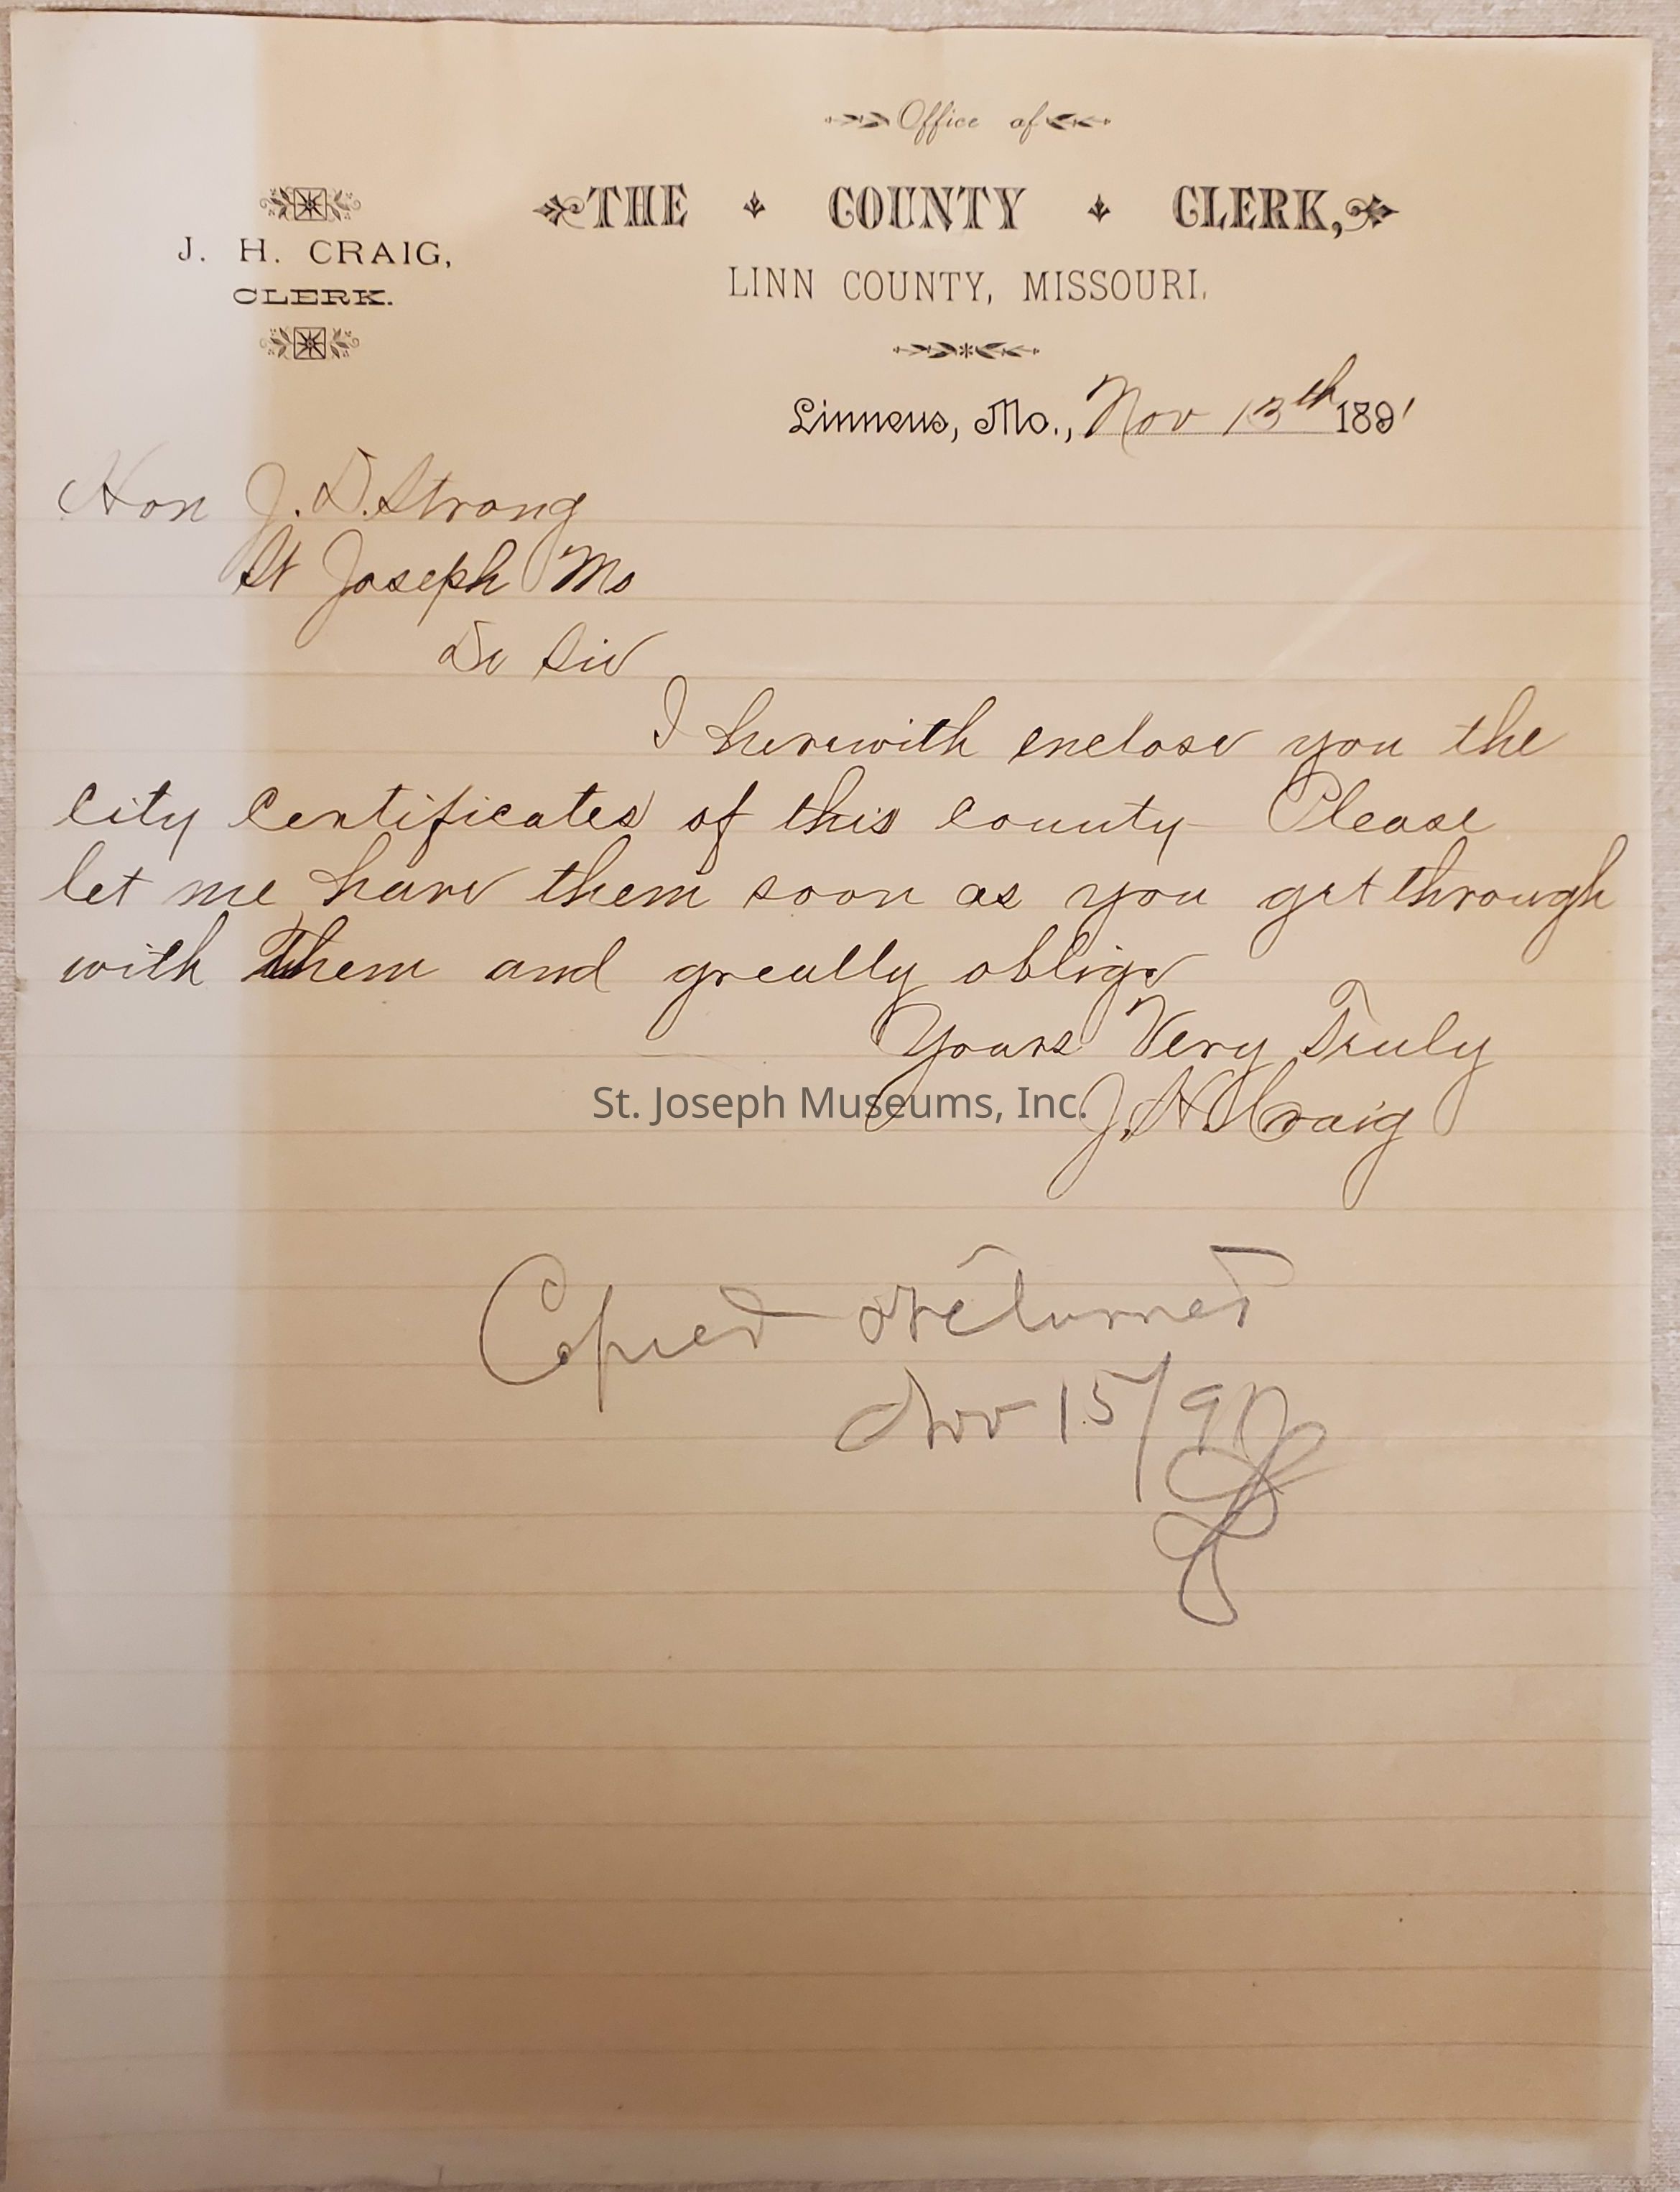 Office of
THE COUNTY CLERK,
LINN COUNTY, MISSOURI.
J. H. CRAIG,
CLERK.
Linneus, Mo., Nov 13th 1891
Hon J. D. Strong
St Joseph Mo
Dr Sir
I herewith enclose you the
City Certificates of this County Please
let me have them soon as you get through
with Them and greatly oblige
Yours Very Truly
J. H. Craig
St. Joseph Museums, Inc.
Copied & returned
Nov 15/9